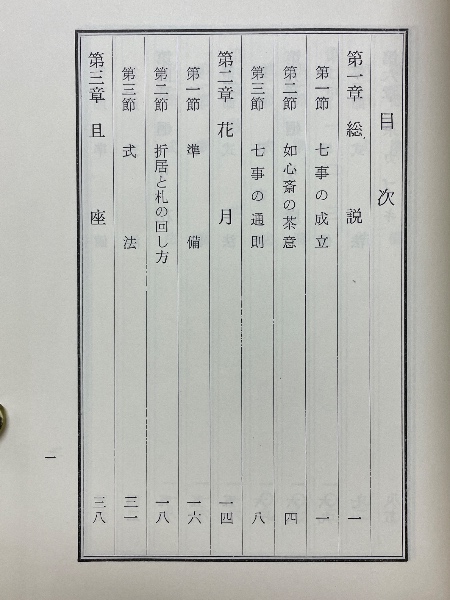 目次
第一章 総説 一
第一節 七事の成立 一
第二節 如心斎の茶意 四
第三節 七事の通則 八
第二章 花月 一四
第一節 準備 一六
第二節 折居と札の回し方 一八
第三節 式法 三一
第三章 且座 三八
一